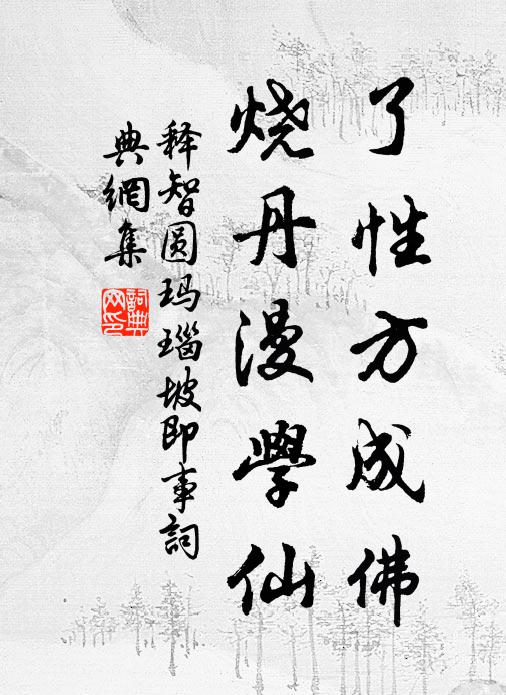 了性方成佛
烧丹漫學仙
释智圆玛瑙坡即事詞
典網集
詞典
网印